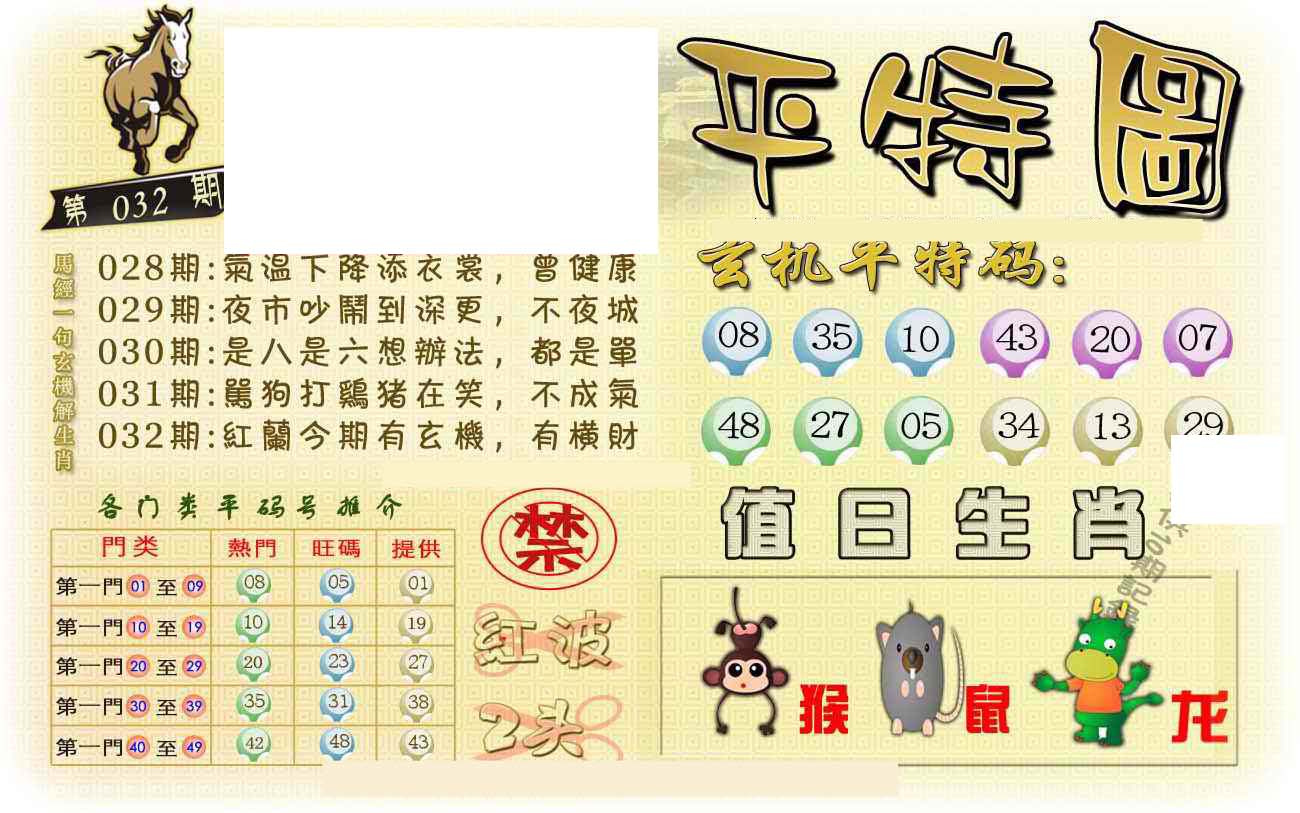 平特圖
第 032 期
馬經一句玄機解生肖
028期:氣溫下降添衣裳，曾健康
029期:夜市吵鬧到深更，不夜城
030期:是八是六想辦法，都是單
031期:駡狗打鷄猪在笑，不成氣
032期:紅蘭今期有玄機，有橫財
玄机平特码:
08 35 10 43 20 07
48 27 05 34 13 29
各门类平码号推介
門类 熱門 旺碼 提供
第一門 01 至 09 08 05 01
第一門 10 至 19 10 14 19
第一門 20 至 29 20 23 27
第一門 30 至 39 35 31 38
第一門 40 至 49 42 48 43
禁
红波
2头
值日生肖
猴 鼠 龙